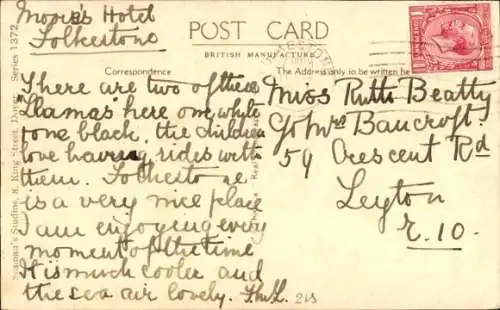 Moore's Hotel
Folkestone
POST CARD
BRITISH MANUFACTURE
Correspondence
The Address only to be written here
There are two of these
"Llamas" here one white
& one black, the children
love having rides with
them. Folkestone
is a very nice place
I am enjoying every
moment of the time
It is much cooler and
the sea air lovely.
Miss Ruth Beatty
C/o Mrs Bancroft
59 Crescent Rd
Leyton
E.10.
King Street, Dover. Series 1372